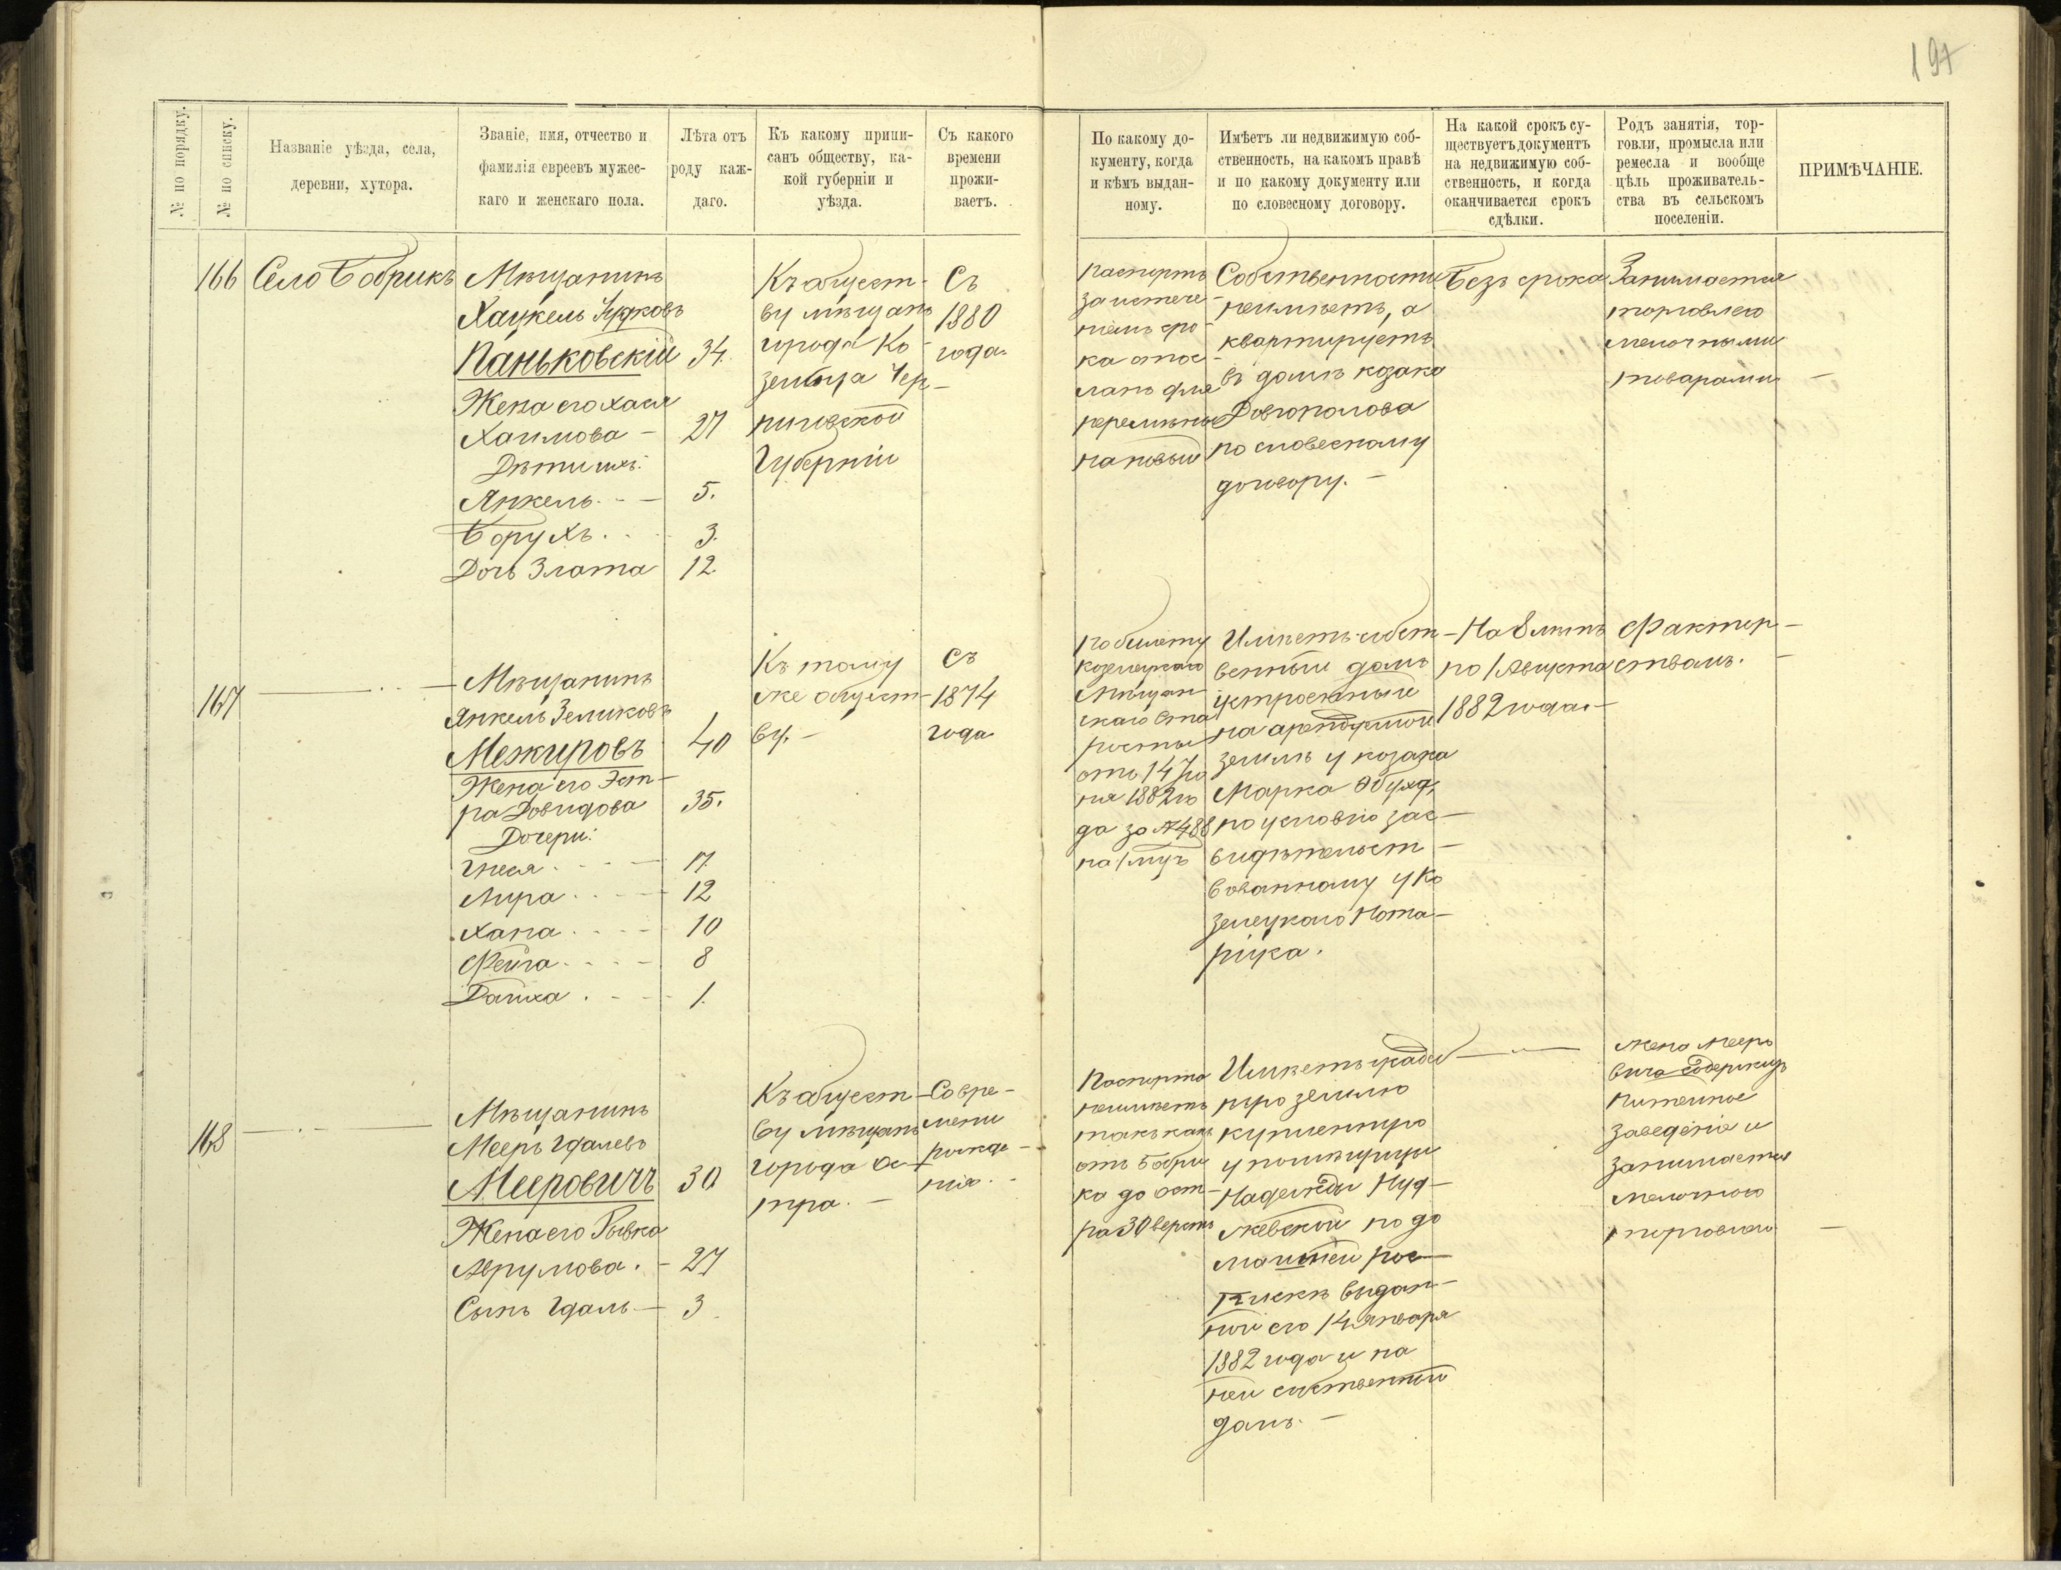 197
№ по порядку.
№ по списку.
Названіе уѣзда, села,
деревни, хутора.
Званіе, имя, отчество и
фамилія евреевъ мужес-
каго и женскаго пола.
Лѣта отъ
роду каж-
даго.
Къ какому припи-
санъ обществу, ка-
кой губерніи и
уѣзда.
Съ какого
времени
прожи-
ваетъ.
По какому до-
кументу, когда
и кѣмъ выдан-
ному.
Имѣетъ ли недвижимую соб-
ственность, на какомъ правѣ
и по какому документу или
по словесному договору.
На какой срокъ су-
ществуетъ документъ
на недвижимую соб-
ственность, и когда
оканчивается срокъ
сдѣлки.
Родъ занятія, тор-
говли, промысла или
ремесла и вообще
цѣль проживатель-
ства въ сельскомъ
поселеніи.
ПРИМѢЧАНІЕ.
166
Село Бобрикъ
Мѣщанинъ
Хацкель
Паньковскій 34.
Жена его Хася
Хаимова - 27
Дѣти ихъ:
Янкель - - 5.
Борухъ. - 3.
Дочь Злата 12.
Къ общест-
ву мѣщанъ
города Ко-
зельца Чер-
ниговской
Губерніи
Съ
1880
года.
Паспортъ
за истече-
ніемъ сро-
ка отос-
ланъ для
перемѣны
на новый
Собственности
неимѣетъ, а
квартируетъ
въ домѣ козака
Довгополова
по словесному
договору. -
Безъ срока
Занимается
торговлею
мелочными
товарами -
167
Мѣщанинъ
Янкель Зеликовъ
Межировъ 40
Жена его Эст-
ра Довидова 35.
Дочери:
Гнеся - - - 17.
Лира - - - 12
Хана - - - 10
Фейга - - - 8
Дайха - - - 1.
Къ тому
же общест-
ву. -
Съ
1874
года
По билету
Козелецкаго
Мѣщан-
скаго Ста
росты
отъ 14 Ію
ня 1882 го
да за №488
на 1 мць
Имѣетъ собст-
венный домъ
устроенный
на арендуемой
землѣ у козака
Марка
по условію зас-
видѣтельст-
вованному у Ко
зелецкаго Нота-
ріуса.
На 8 лѣтъ
по 1 Августа
1882 года. -
Фактор-
ствомъ. -
168
Мѣщанинъ
Мееръ Гдалевъ
Мееровичъ 30
Жена его Рывка
Аврумова. - 27
Сынъ Гдаль - 3.
Къ общест-
ву мѣщанъ
города Ос-
тра. -
Со вре-
мени
рожде-
нія. -
Паспорта
неимѣетъ
такъ какъ
отъ Бобри
ка до Ост-
ра 30 верстъ
Имѣетъ усадеб
ную землю
купленную
у помѣщицы
Надежды
по до
машней рос-
пискѣ выдан-
ной его 14 января
1882 года и на
ней собственный
домъ. -
Жена Мееро
вича содержитъ
питейное
заведеніе и
занимается
мелочною
торговлею -